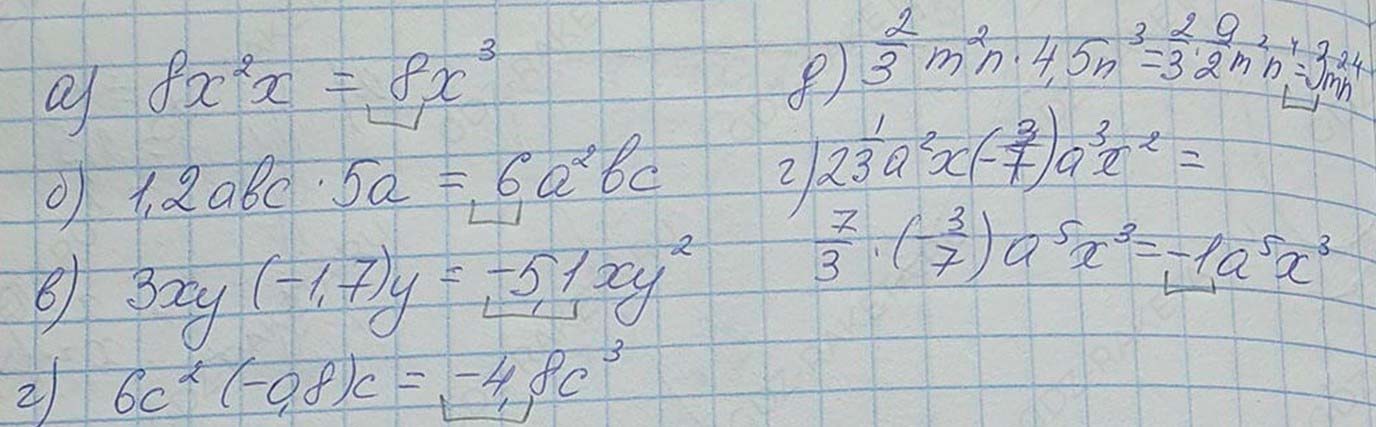 а) 8x²x = 8x³
б) 1,2abc · 5a = 6a²bc
в) 3xy (-1,7)y = -5,1xy²
г) 6c² (-0,8)c = -4,8c³
д) 2/3 m²n · 4,5n³ = 2/3 · 9/2 m²n⁴ = 3m²n⁴
г) 2 1/3 a²x (-3/7) a³x² =
7/3 · (-3/7) a⁵x³ = -1a⁵x³